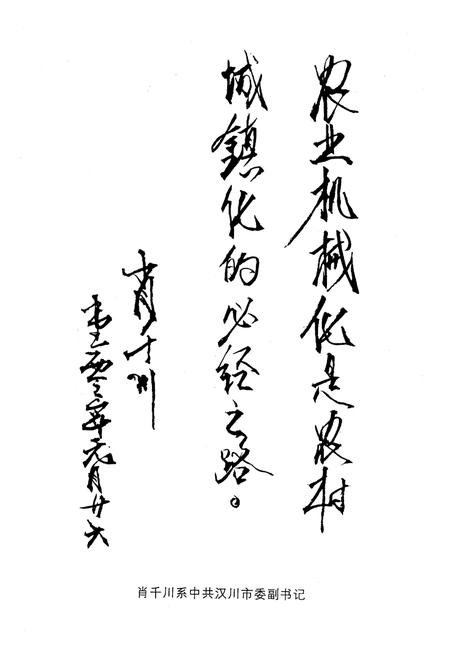 农业机械化是农村
城鎮化的必经之路。
肖千川
零年元月廿六
肖千川系中共汉川市委副书记